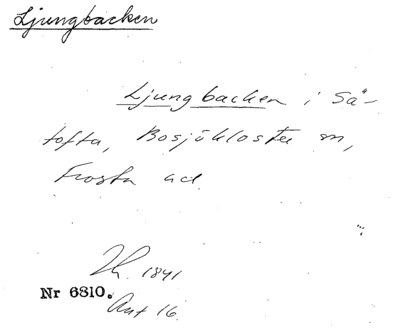 Ljungbacken
Ljungbacken i Sä-
tofta, Bosjökloster sn,
Frosta hd
1841
Nr 6810.
Ant 16.